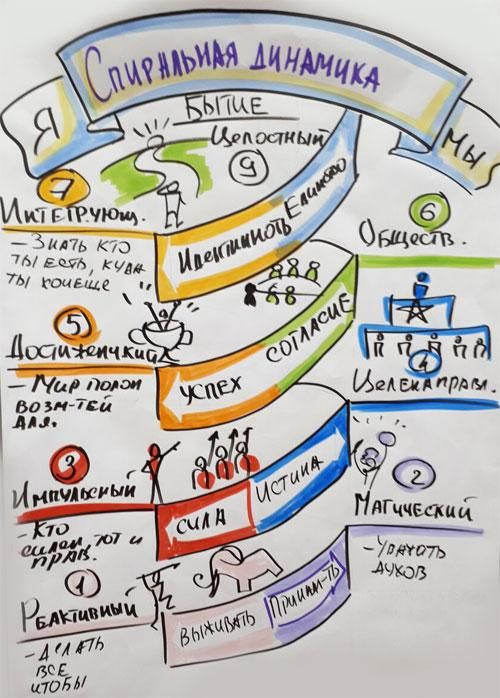 Спиральная динамика
Я
Мы
Бытие
Целостный
9
7
Интегрующ.
- Знать кто
ты есть, куда
ты
Идентичность
Единство
6
Обществ.
5
Достиженчкий
- Мир полон
возм-тей
для.
Успех
Согласие
4
Целенаправл.
3
Импульсный
- Кто
силен, тот и
прав.
Сила
Истина
2
Магический
- Уважать
духов
1
Реактивный
- Делать
все
чтобы
Выживать
Принадл-ть